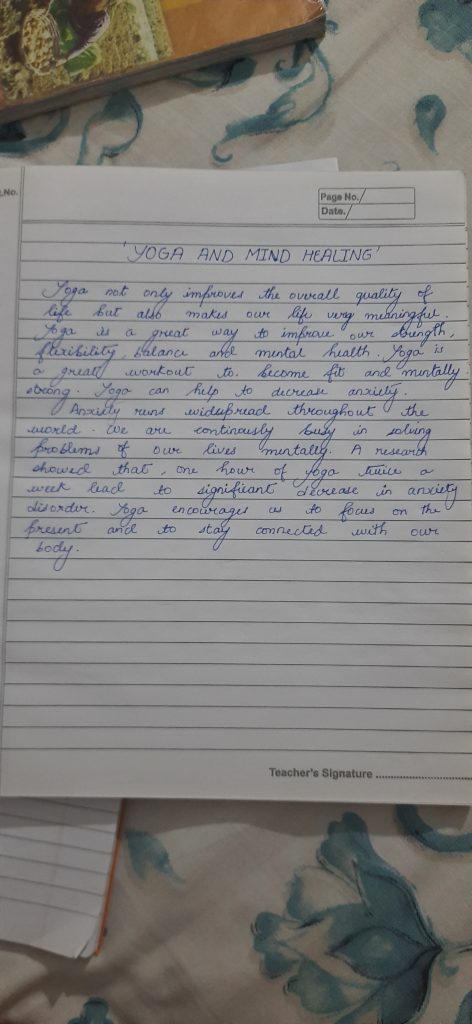 .No.
Page No.
Date.
'YOGA AND MIND HEALING'
Yoga not only improves the overall quality of
life but also makes our life very meaningful.
Yoga is a great way to improve our strength,
flexibility, balance and mental health. Yoga is
a great workout to become fit and mentally
strong. Yoga can help to decrease anxiety.
Anxiety runs widespread throughout the
world. We are continously busy in solving
problems of our lives mentally. A research
showed that, one hour of yoga twice a
week lead to significant decrease in anxiety
disorder. Yoga encourages us to focus on the
present and to stay connected with our
body.
Teacher's Signature